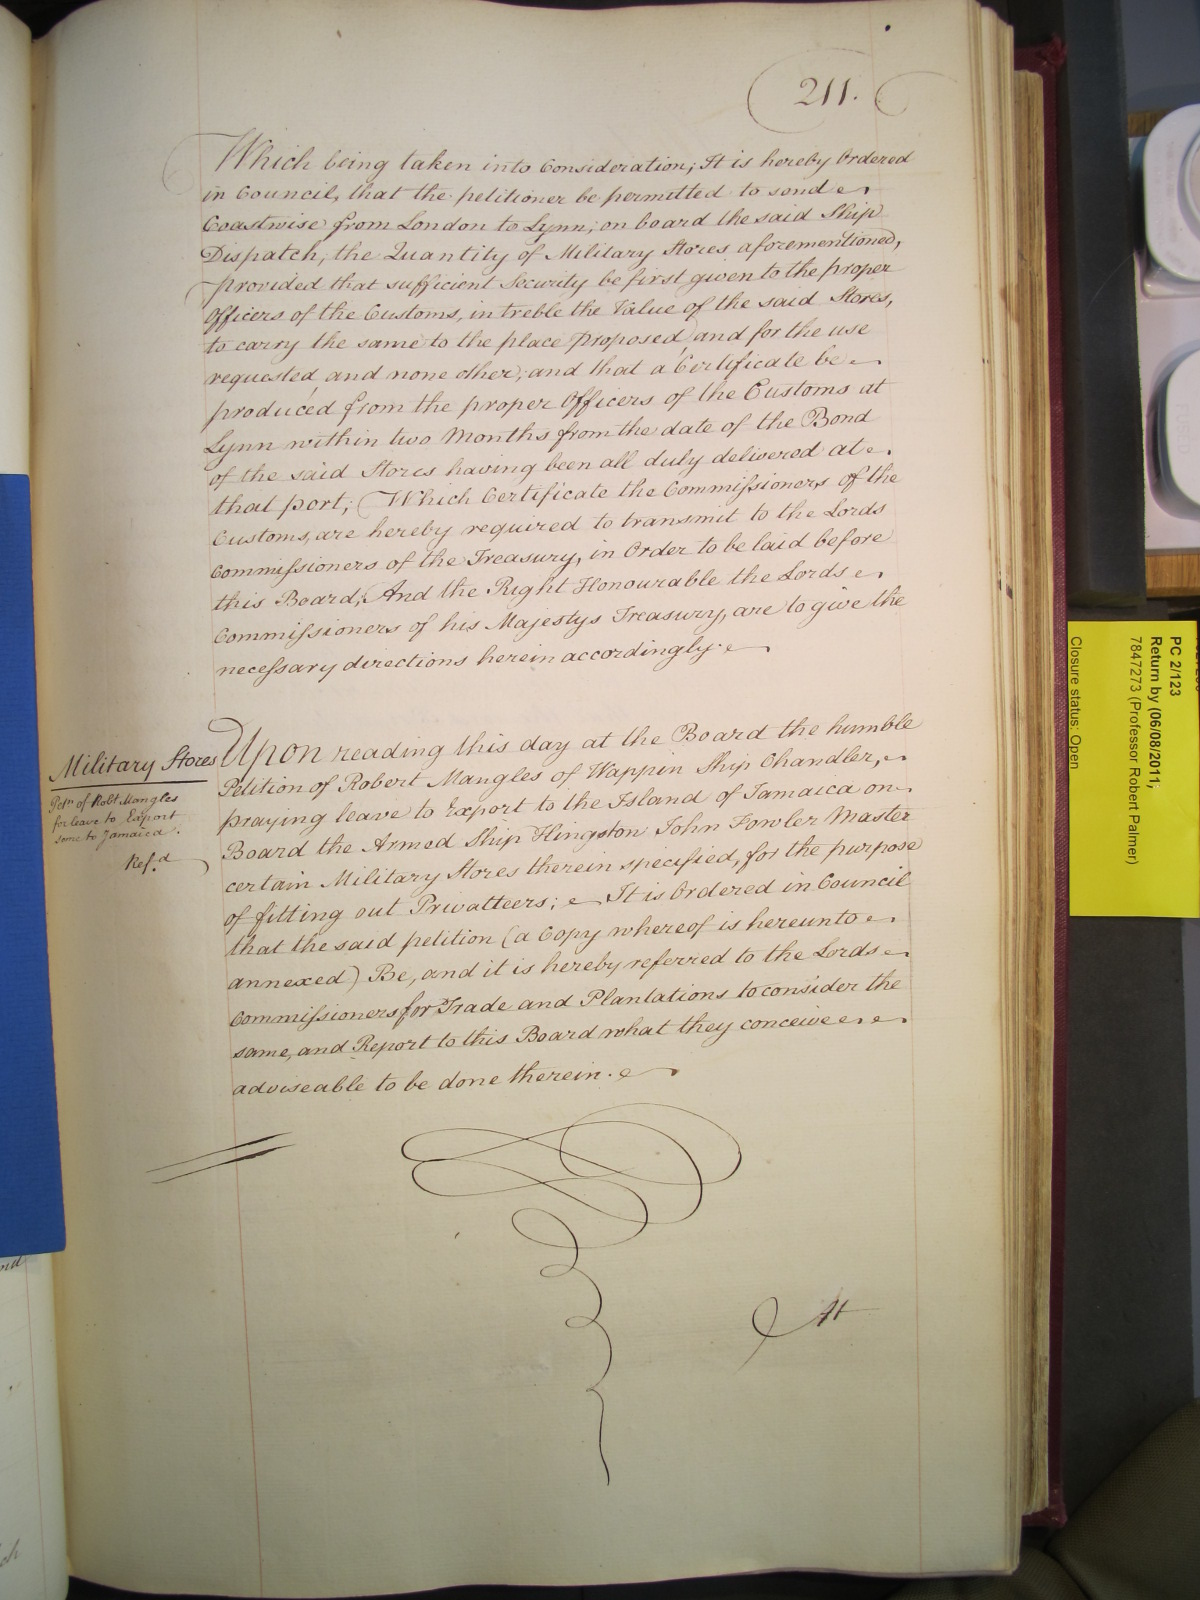 211.
Which being taken into Consideration; It is hereby Ordered
in Council, that the petitioner be permitted to send
Coastwise from London to Lynn, on board the said Ship
Dispatch, the Quantity of Military Stores aforementioned,
provided that sufficient Security be first given to the proper
Officers of the Customs, in treble the Value of the said Stores,
to carry the same to the place proposed and for the use
requested and none other; and that a Certificate be
produced from the proper Officers of the Customs at
Lynn within two Months from the date of the Bond
of the said Stores having been all duly delivered at
that port; Which Certificate the Commissioners of the
Customs, are hereby required to transmit to the Lords
Commissioners of the Treasury, in Order to be laid before
this Board; And the Right Honourable the Lords
Commissioners of his Majestys Treasury, are to give the
necessary directions herein accordingly.
Military Stores
Petn. of Robt. Mangles
for leave to Export
some to Jamaica.
Ref.d
Upon reading this day at the Board the humble
Petition of Robert Mangles of Wappin Ship Chandler,
praying leave to Export to the Island of Jamaica on
Board the Armed Ship Hingston John Fowler Master
certain Military Stores therein specified, for the purpose
of fitting out Privatteers; It is Ordered in Council
that the said petition (a Copy whereof is hereunto
annexed) Be, and it is hereby referred to the Lords
Commissioners for Trade and Plantations to consider the
same, and Report to this Board what they conceive
adviseable to be done therein.
At
PC 2/123
Return by (06/08/2011;
7847273 (Professor Robert Palmer)
Closure status: Open